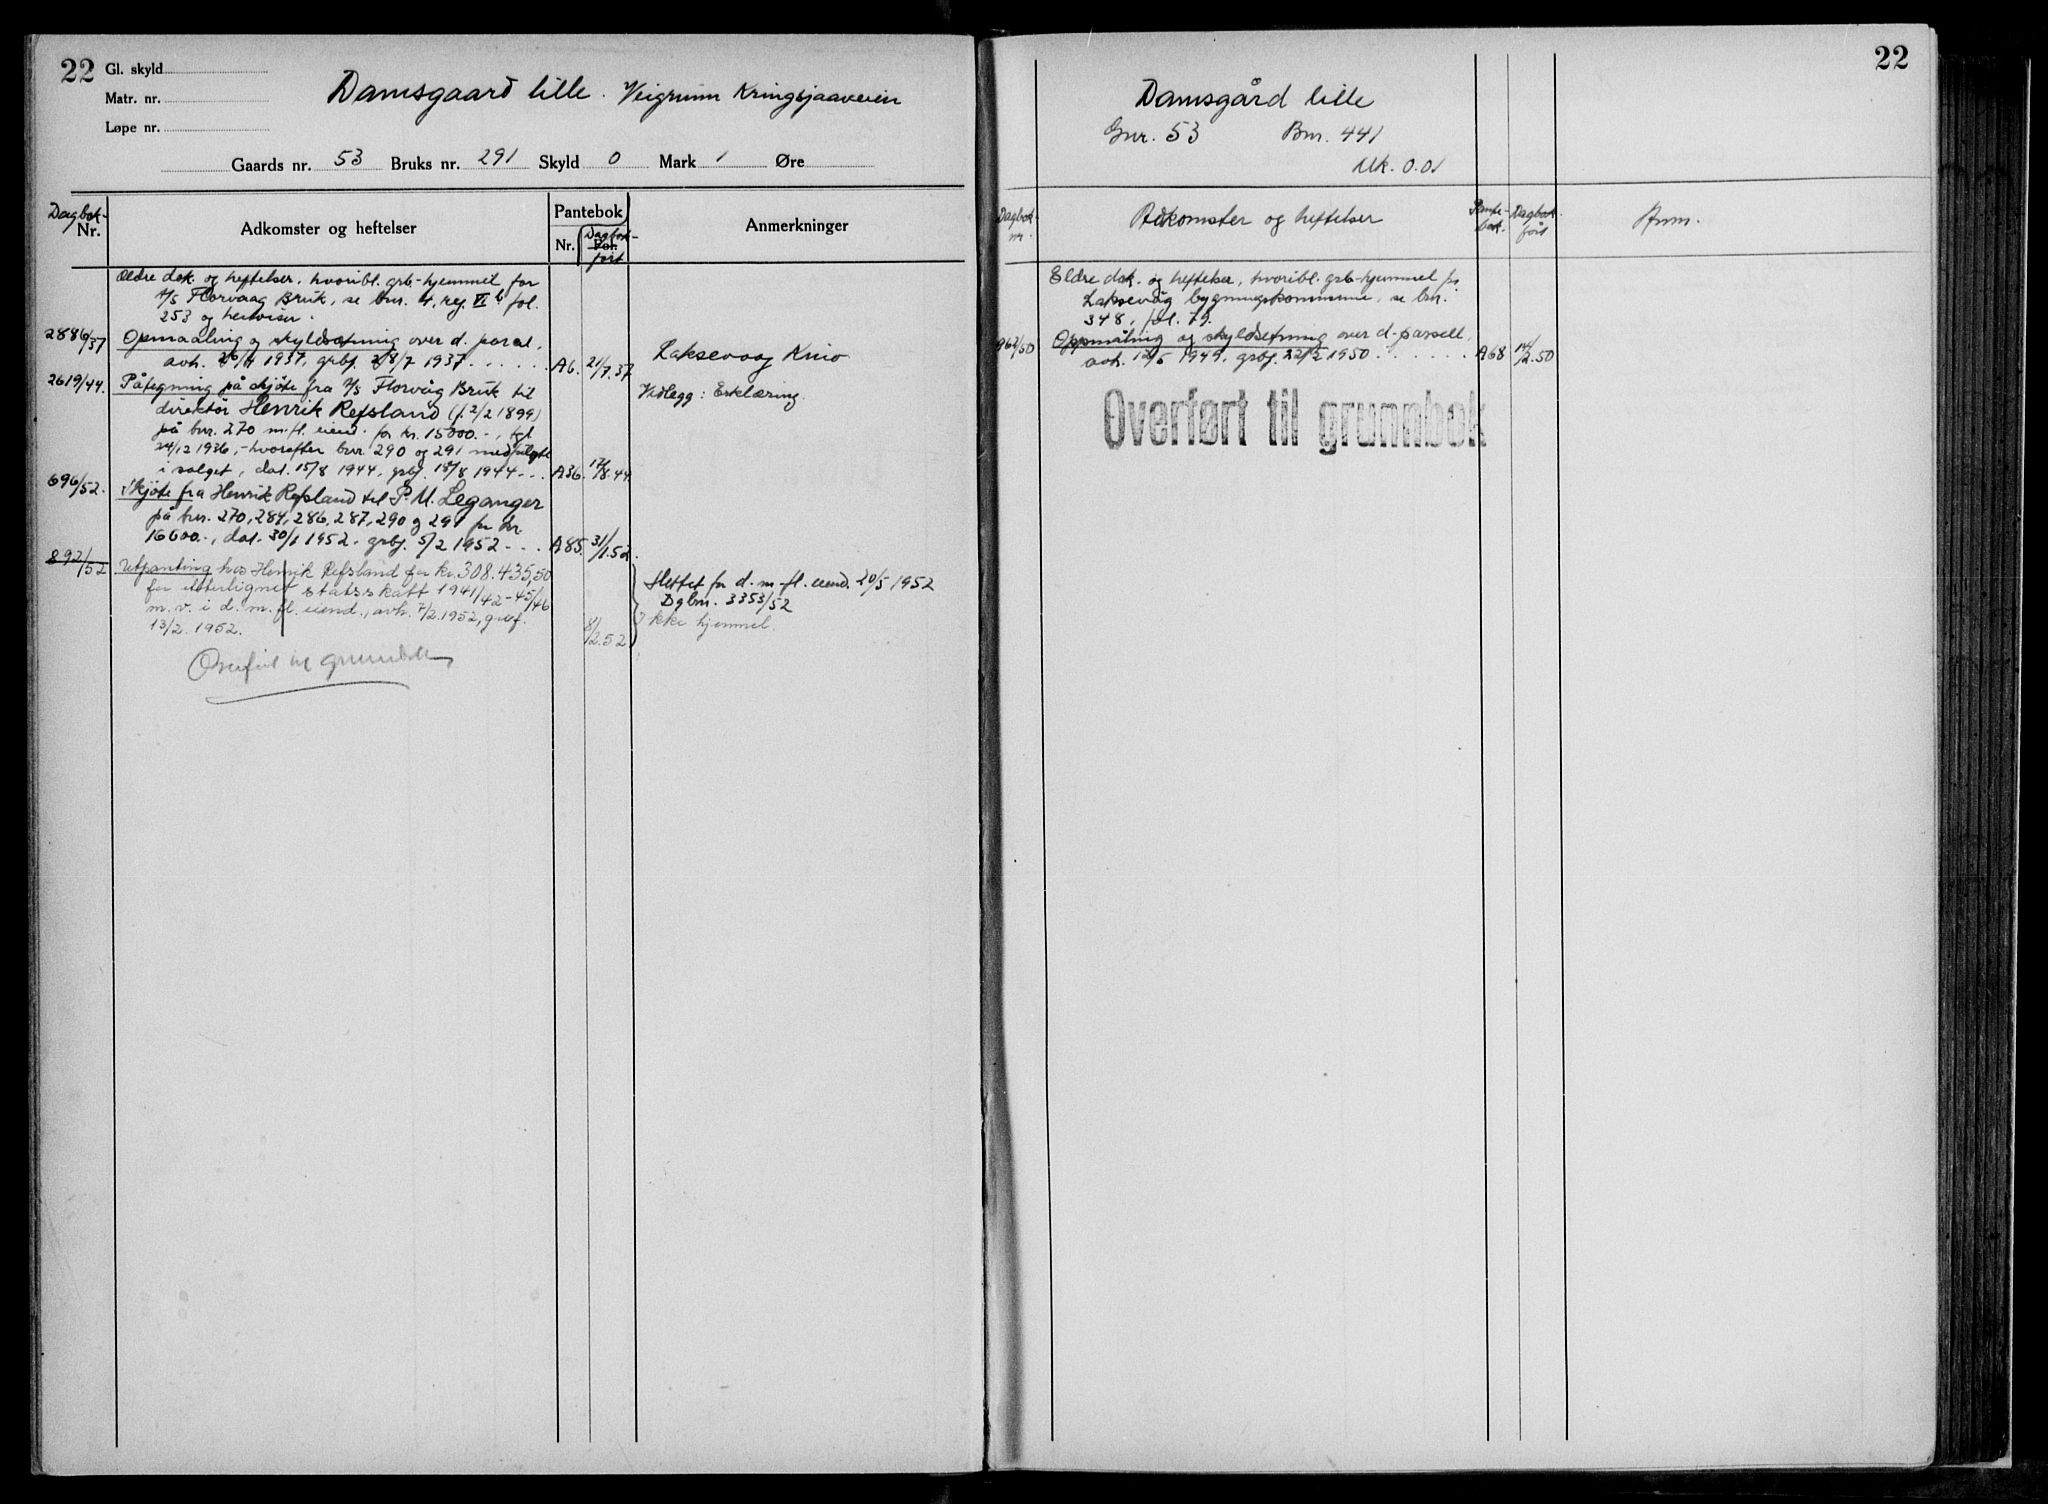 22
Gl. skyld
Matr. nr.
Løpe nr.
Damsgaard lille. Veigrunn Kringsjaaveien
Gaards nr. 53 Bruks nr. 291 Skyld 0 Mark 1 Øre
Dagbok-
Nr.
Adkomster og heftelser
Pantebok
Nr.
Fol.
Dagbok-
ført
Anmerkninger
Ældre dok. og heftelser, hvoribl. grb-hjemmel for
A/S Florvaag Bruk, se bnr. 4, reg. VI b fol.
253 og henviser.
2886/37 Opmaaling og skyldsætning over d. parcel,
avh. 1937, grbf. 28/7 1937 . . . . . . A6. 21/7.37 Laksevaag Kino
2619/44. Påtegning på skjøte fra A/S Florvåg Bruk til Vedlegg: Erklæring.
direktør Henrik Refsland (f. 2/2 1899)
på bnr. 270 m.fl. eiend. for kr. 15000.-, tgl.
24/12 1936, - hvorefter bnr. 290 og 291 medfulgte
i salget, dat. 15/8 1944, grbf. 18/8 1944 - . . A36. 17/8.44
696/52. Skjøte fra Henrik Refsland til P. M. Leganger
på bnr. 270, 284, 286, 287, 290 og 291 for kr.
16000.-, dat. 30/1 1952, grbf. 5/2 1952 - . . A85. 31/1.52.
892/52 Utpanting hos Henrik Refsland for kr. 308.435,50
for etterlignet statsskatt 1941/42-45/46
m.v. i d. m. fl. eiend., avh. 7/2 1952, grbf.
13/2 1952. 8/2.52
Slettet for d. m. fl. eiend. 20/5 1952
Dgbnr. 3353/52
Ikke hjemmel.
Overført til grunnbok
22
Damsgård lille
Gnr. 53 Bnr. 441
Mk. 0.01
Dagbok-
nr.
Adkomster og heftelser
Pante-
bok.
Dagbok
ført
Anm.
Eldre dok. og heftelser, hvoribl. grb-hjemmel for
Laksevåg bygningskommune, se bnr.
348, fol. 79.
962/50 Oppmåling og skyldsetning over d. parsell,
avh. 12/5 1949, grbf. 22/2 1950 . . . . . . A68 14/2.50
Overført til grunnbok